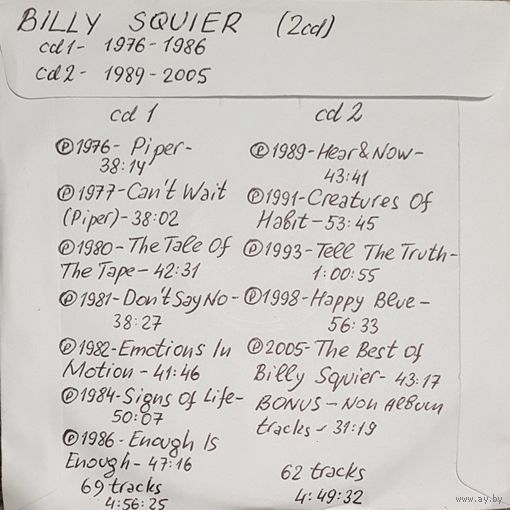 BILLY SQUIER (2cd)
cd1- 1976-1986
cd2- 1989-2005
cd 1
℗1976- Piper-
38:14
℗1977-Can't Wait
(Piper)-38:02
℗1980-The Tale Of
The Tape-42:31
℗1981-Don't Say No-
38:27
℗1982-Emotions In
Motion-41:46
℗1984-Signs Of Life-
50:07
℗1986-Enough Is
Enough-47:16
69 tracks
4:56:25
cd 2
℗1989-Hear&Now-
43:41
℗1991-Creatures Of
Habit-53:45
℗1993-Tell The Truth-
1:00:55
℗1998-Happy Blue-
56:33
℗2005-The Best Of
Billy Squier-43:17
BONUS-Non Album
tracks-31:19
62 tracks
4:49:32
www.ay.by